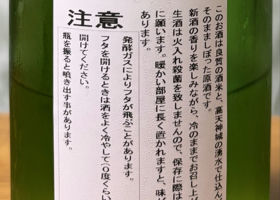 このお酒は良質の酒米と、高天神城の湧水で仕込ん
そのまましぼった原酒です。
新酒の香りを楽しみながら、冷のままでお召し上
生酒は火入れ殺菌を致しませんので、保存に際は
に願います。暖かい部屋に長く置かれますと、味
あります。
注意
発酵ガスによりフタが飛ぶことがあります。
フタを開けるときは酒をよく冷やして(0度くらい
開けてください。
瓶を振ると噴き出す事があります。